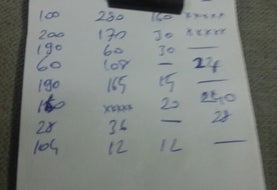 100 280 160 xxxxx
200 170 30 xxxxx
190 60 30 —
60 108 —
190 165 15 —
xxxxx 20
28 36 — 28
104 12 12 —